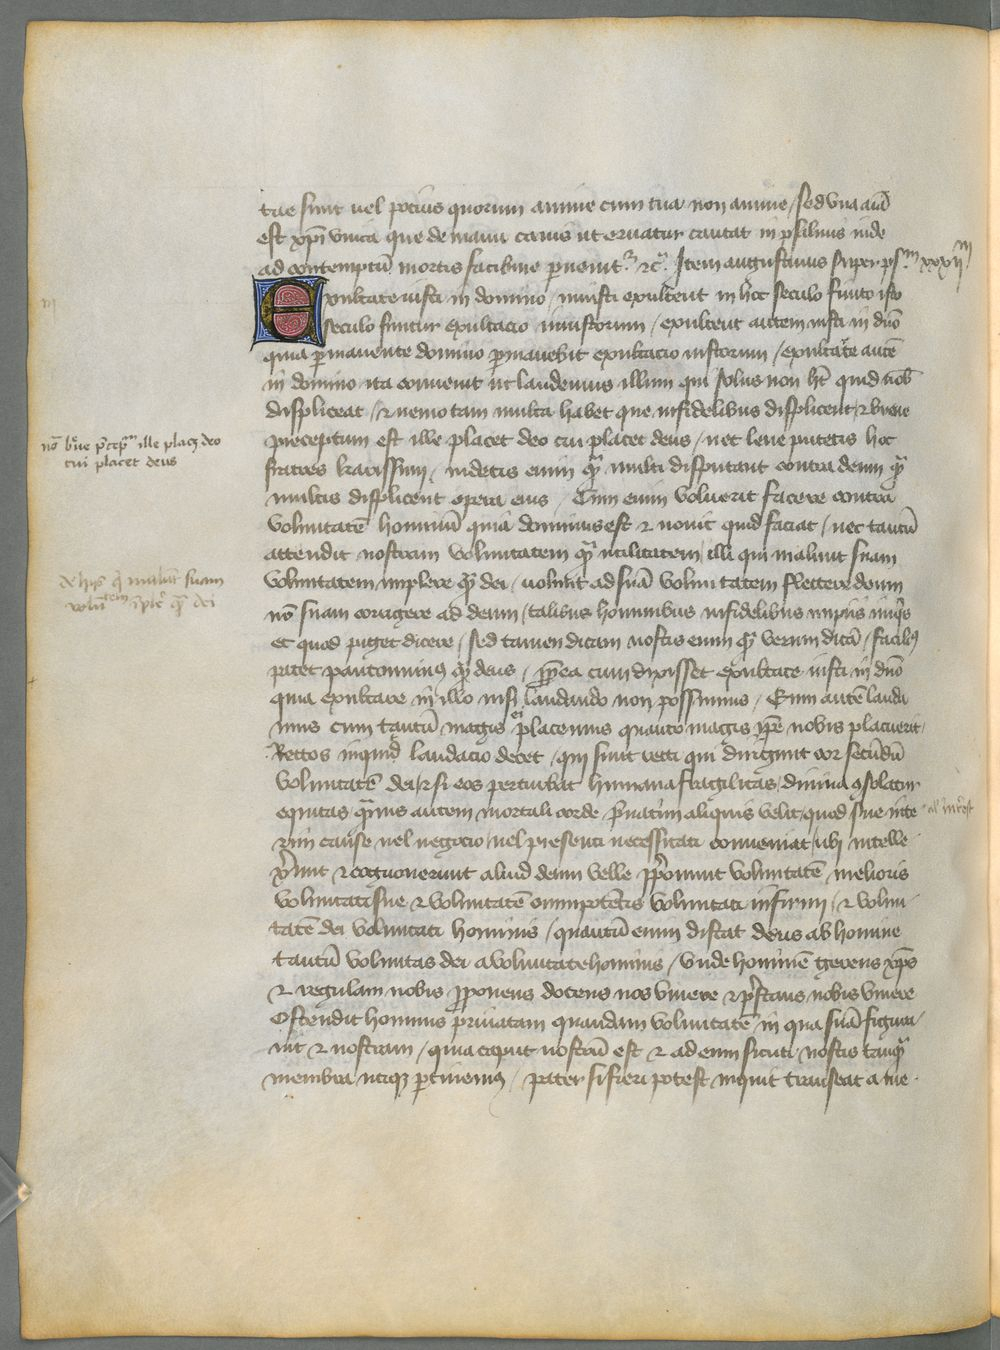 tue sunt uel pocius quorum anime cum tua non anime / sed vna aīa
est xp̄i vnica que de manu canis ut eruatur cantat in psalmus inde
ad contemptū mortis facibine peruenit᷑ ⁊c̃. Item augustinus super ps.m xxxii
Exultate iusti in domino / iniusti exultent in hoc seculo finito isto
seculo finitur exultacio iniustorum / exultent autem iusti in dn̄o
quia p̱manente domino p̱manebit exultacio iustorum / exultate autē
in domino ita conuenit ut laudemus illum qui solus non hēt quid nob̄
displiceat / ⁊ nemo tam multa habet que infidelibus displicent / ⁊ breue
preceptum est ille placet deo cui placet deus / nec leue putetis hoc
fratres karissimi / videtis enim qm̄ multi disputant contra deum qm̄
multis displicent opera eius / Cum enim voluerit facere contra
voluntatē hominū quia dominus est ⁊ nouit quid faciat / nec tantū
attendit nostram voluntatem qm̄ utilitatem / illi qui malunt suam
voluntatem implere qm̄ dei / uolunt ad suā voluntatem flectere deum
nō suam corrigere ad deum / talibus hominibus infidelibus impiis iniq̄s
et quod piget dicere / sed tamen dicam nostis enim qm̄ verum dicā / facilius
placet pantominus qm̄ deus / ꝓpt̄ea cum dixisset exultate iusti in dn̄o
quia exultare in illo nisi laudando non possumus / Eum autē lauda
mus cum tantū magis ei placemus quanto magis ip̄e nobis placuerit /
Rectos inquid laudacio decet / qui sunt recti qui dirigunt cor secūdū
voluntatē dei / ⁊ si eos perturbat humana fragilitas / diuina ꝯsolatur
equitas / qm̄uis autem mortali corde p̱uatim aliquis velit / quod sue inte
rim cause uel negocio / uel presenti necessitati conueniat / ubi intelle
x̄int ⁊ cognouerint aliud deum velle p̄ponunt voluntatē melioris
voluntati sue ⁊ voluntatē omnipotētis voluntati infirmi / ⁊ volun
tatē dei voluntati hominis / quantū enim distat deus ab homine
tantū voluntas dei a voluntate hominis / vnde hominē gerens xp̄s
⁊ regulam nobis ꝓponens docens nos viuere ⁊ p̄stans nobis viuere
Ostendit hominis priuatam quandam voluntatē in qua suā figura /
uit ⁊ nostram / quia caput nostrū est ⁊ ad eum sicuti nostis tanqm̄
membra utiqz p̱tinemus / pater si fieri potest inquit transeat a me
nō br̄ue p̄cep̄tm ille placz deo
cui placet deus
de hijs q̄ malūt suam
volūtatem īplē qm̄ dei